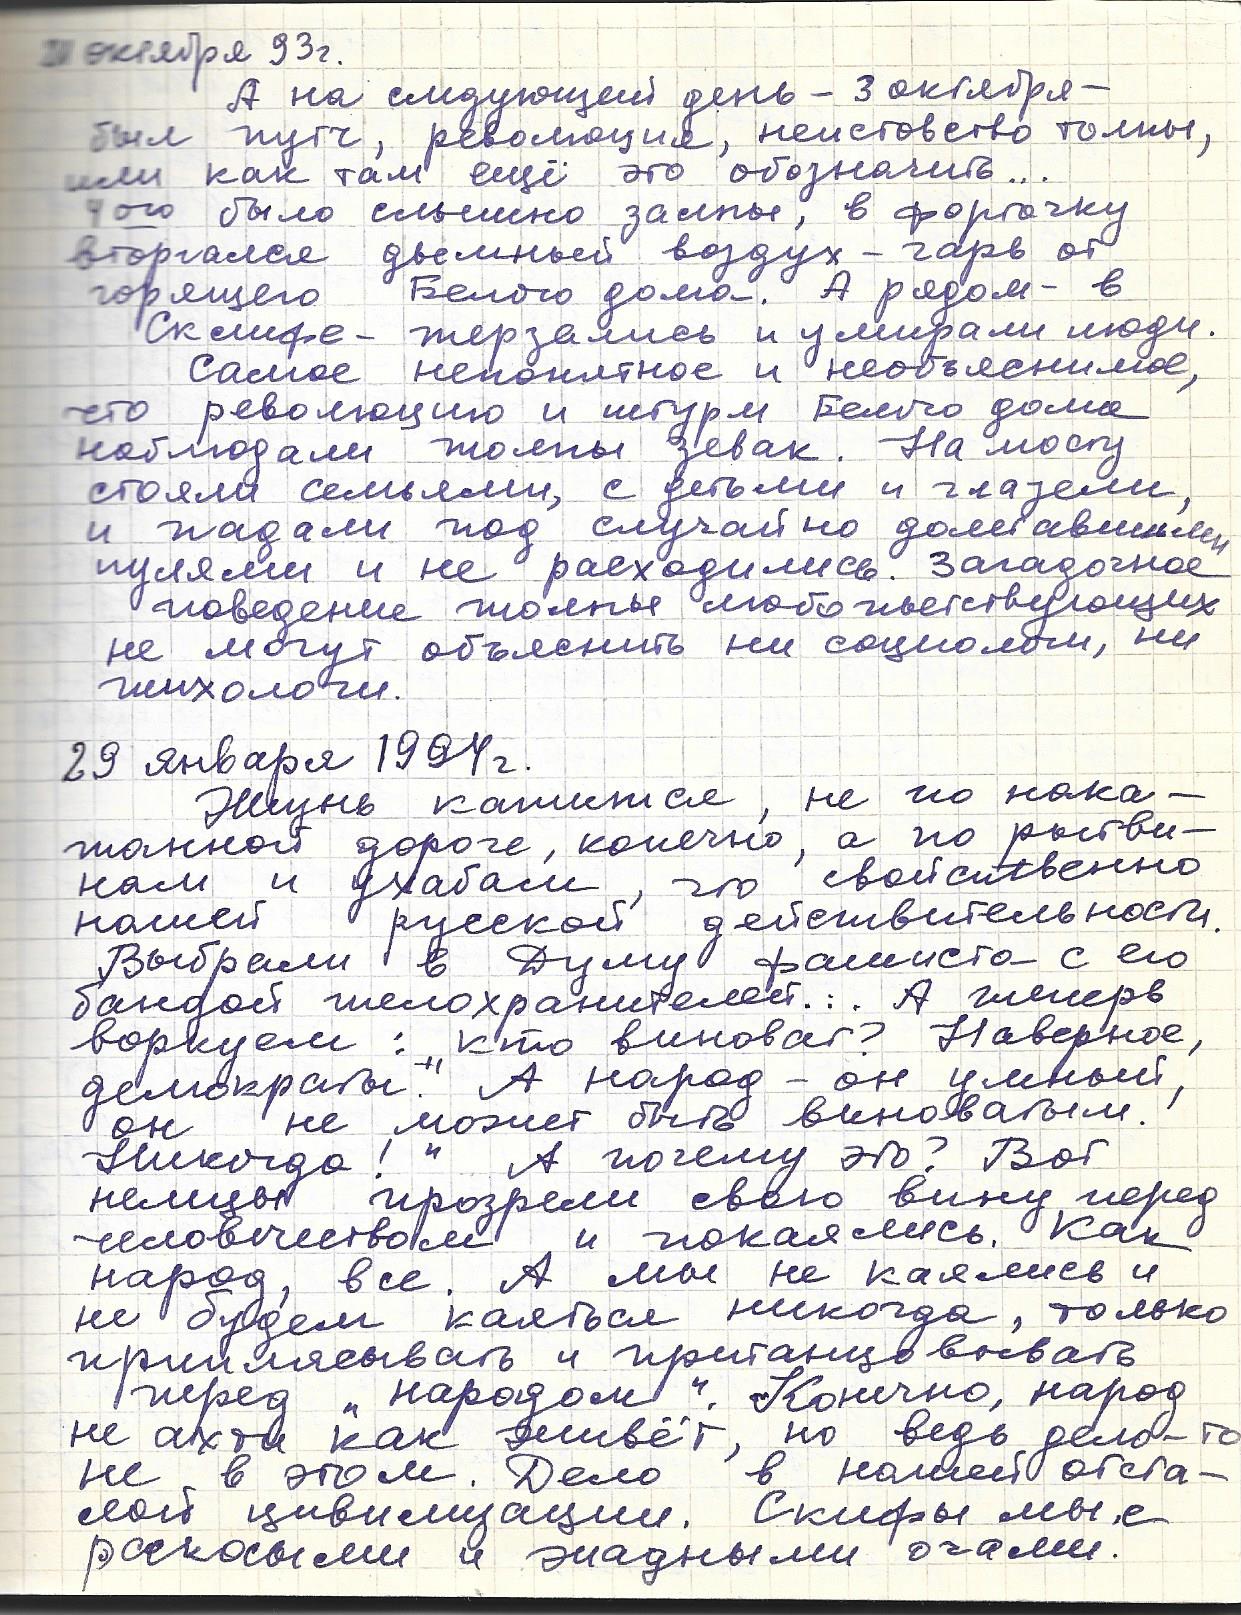 октября 93г.
А на следующий день – 3 октября –
был путч, революция, неистовство толпы,
или как там ещё это обозначить...
4ого было слышно залпы, в форточку
вторгался дымный воздух – гарь от
горящего Белого дома. А рядом – в
Склифе – терзались и умирали люди.
Самое непонятное и необъяснимое,
что революцию и штурм Белого дома
наблюдали толпы зевак. На мосту
стояли семьями, с детьми и глазели,
и падали под случайно долетавшими
пулями и не расходились. Загадочное
поведение толпы любопытствующих
не могут объяснить ни социологи, ни
психологи.
29 января 1994г.
Жизнь катится, не по нака-
танной дороге, конечно, а по рытви-
нам и ухабам, что свойственно
нашей русской действительности.
Выбрали в Думу фашиста с его
бандой телохранителей... А теперь
воркуем: "Кто виноват? Наверное,
демократы". А народ – он умный,
он не может быть виноватым!
Никогда!" А почему это? Вот
немцы прозрели свою вину перед
человечеством и покаялись. Как
народ, все. А мы не каялись и
не будем каяться никогда, только
приплясывать и пританцовывать
перед "народом". Конечно, народ
не ахти как живёт, но ведь дело-то
не в этом. Дело в нашей отста-
лой цивилизации. Скифы мы, с
раскосыми и жадными очами.